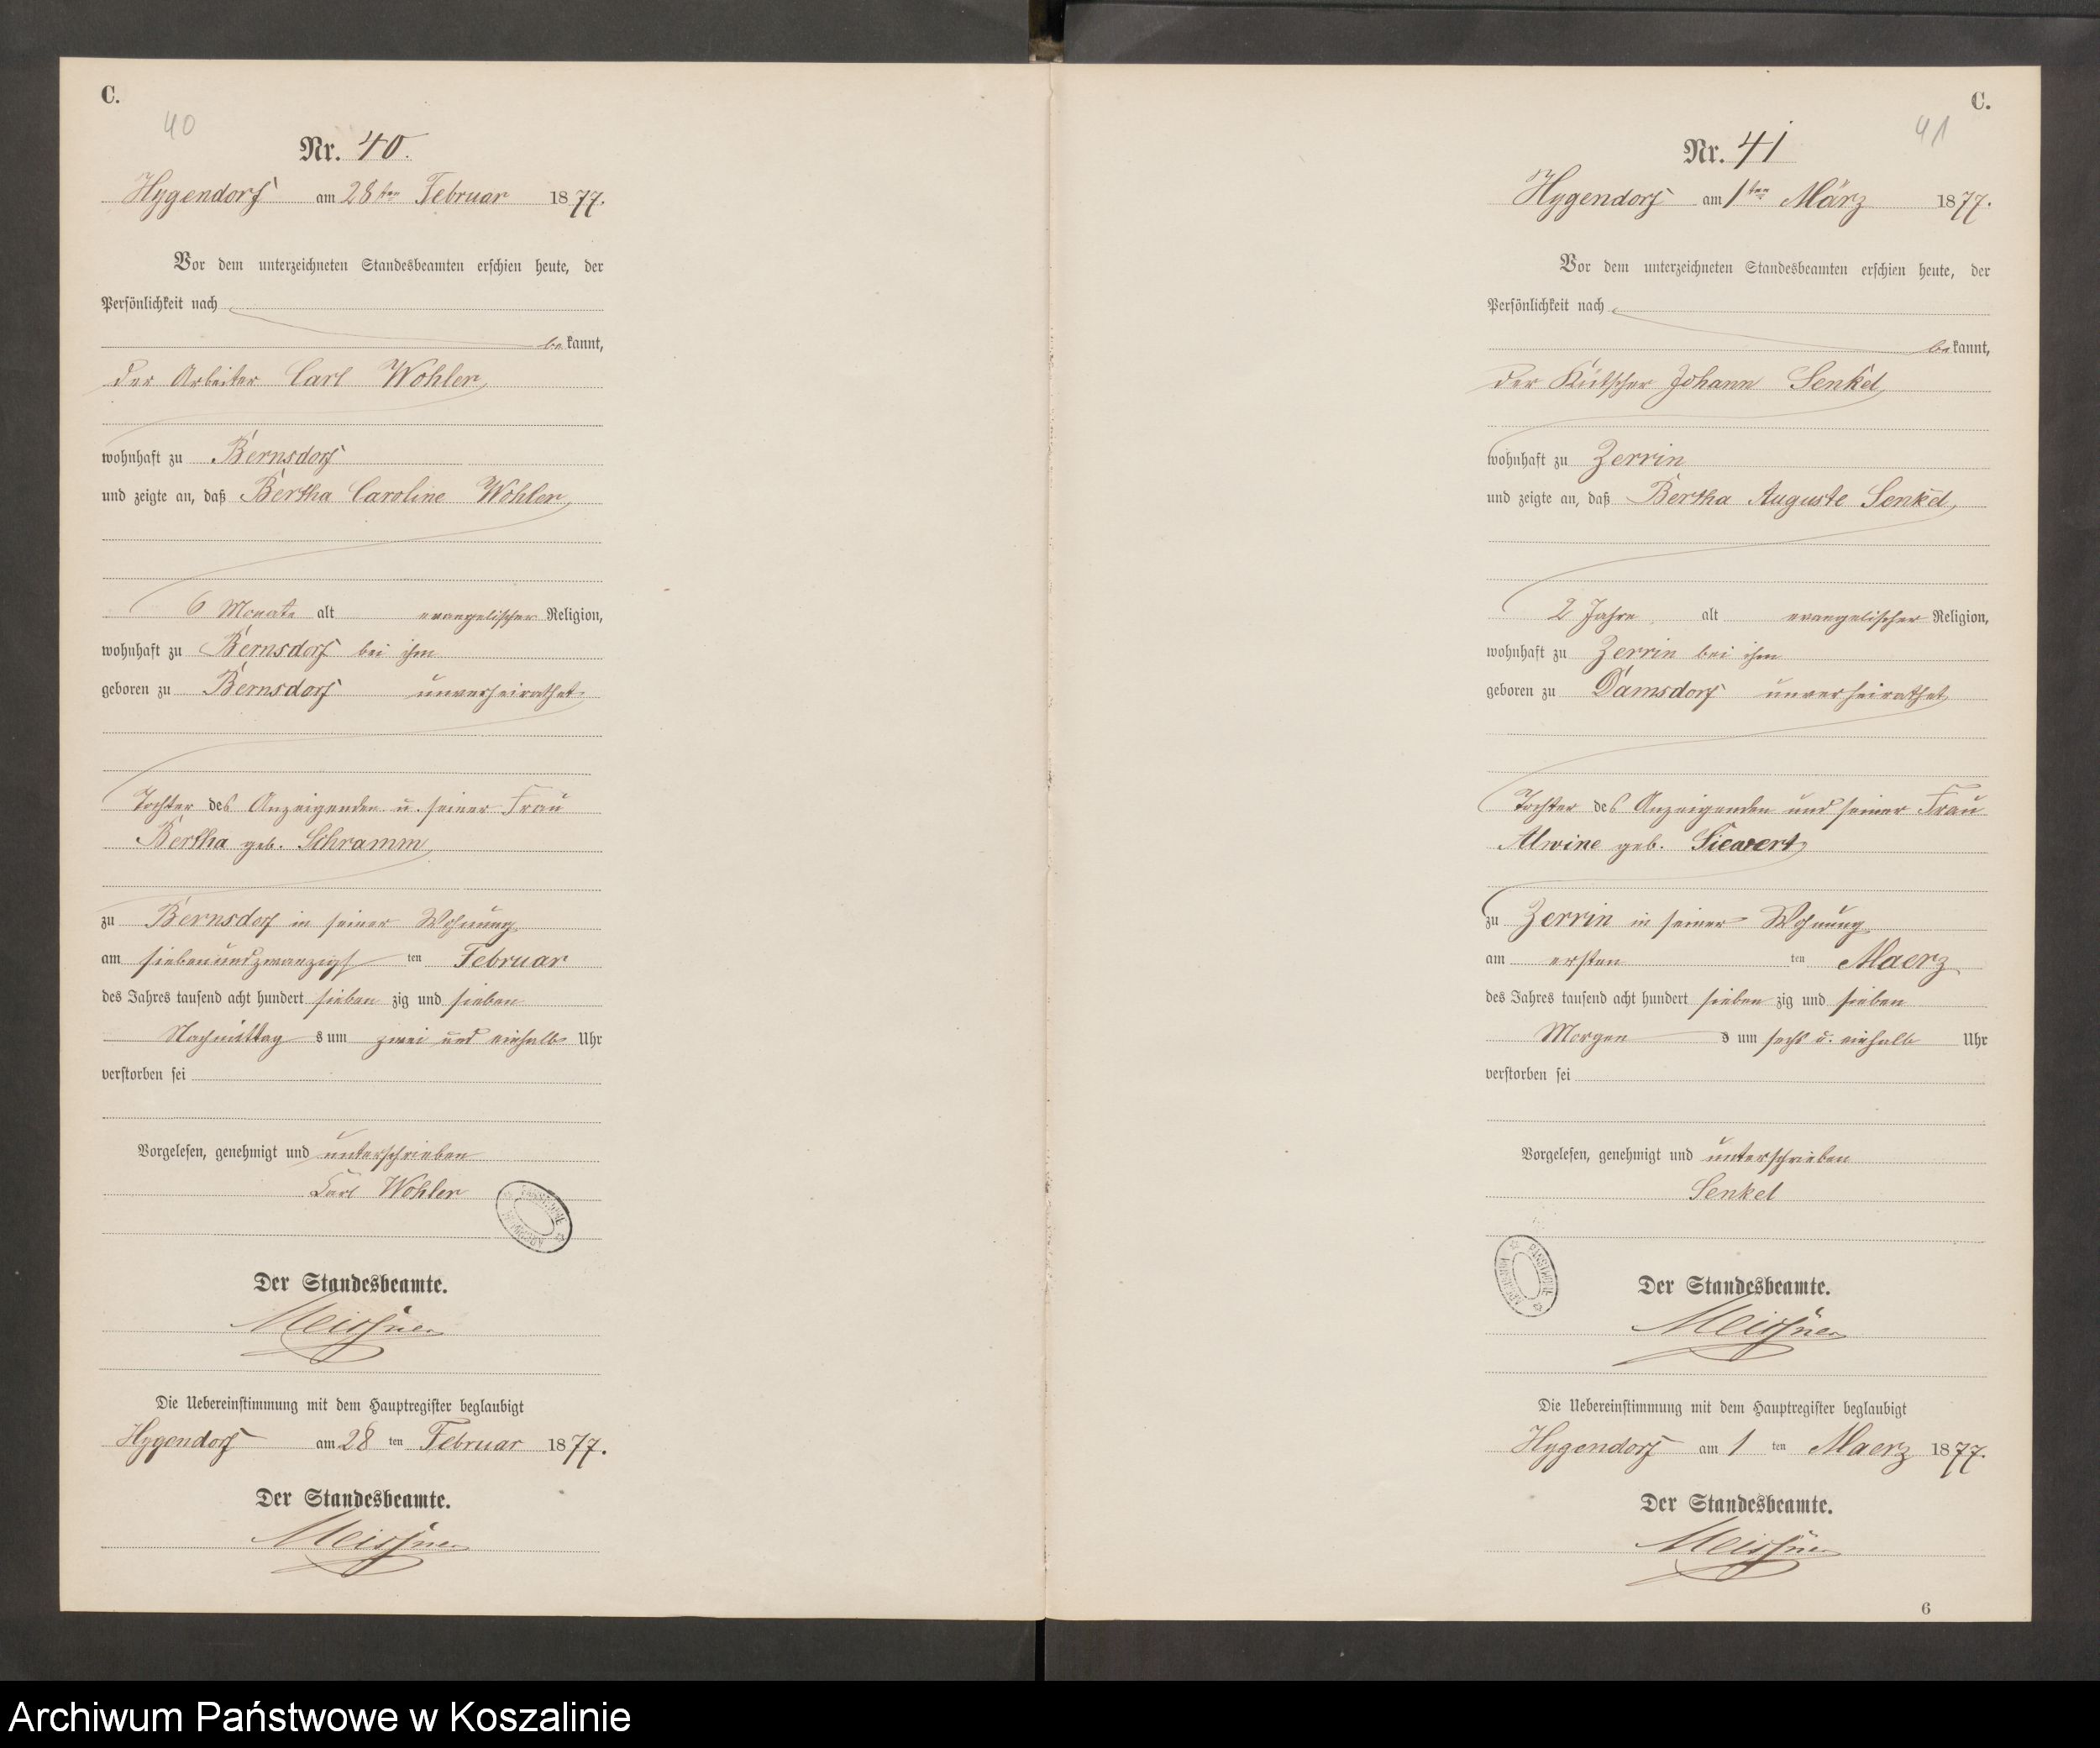 C.
40
Nr. 40.
Hygendorf am 28ten Februar 1877.
Vor dem unterzeichneten Standesbeamten erschien heute, der
Persönlichkeit nach
bekannt,
der Arbeiter Carl Wohler,
wohnhaft zu Bernsdorf
und zeigte an, daß Bertha Caroline Wohler,
6 Monate alt evangelischer Religion,
wohnhaft zu Bernsdorf bei ihm
geboren zu Bernsdorf unverheirathet,
Tochter des Anzeigenden u. seiner Frau
Bertha geb. Schramm,
zu Bernsdorf in seiner Wohnung
am siebenundzwanzigsten Februar
des Jahres tausend acht hundert sieben zig und sieben
Nachmittags um zwei und einhalb Uhr
verstorben sei
Vorgelesen, genehmigt und unterschrieben
Carl Wohler
Der Standesbeamte.
Meissner
Die Uebereinstimmung mit dem Hauptregister beglaubigt
Hygendorf am 28 ten Februar 1877.
Der Standesbeamte.
Meissner
C.
41
Nr. 41
Hygendorf am 1ten März 1877.
Vor dem unterzeichneten Standesbeamten erschien heute, der
Persönlichkeit nach
bekannt,
der Kutscher Johann Senkel,
wohnhaft zu Zerrin
und zeigte an, daß Bertha Auguste Senkel,
2 Jahre alt evangelischer Religion,
wohnhaft zu Zerrin bei ihm
geboren zu Damsdorf unverheirathet,
Tochter des Anzeigenden und seiner Frau
Alwine geb. Siewert,
zu Zerrin in seiner Wohnung
am ersten ten Maerz
des Jahres tausend acht hundert sieben zig und sieben
Morgens um sechs u. einhalb Uhr
verstorben sei
Vorgelesen, genehmigt und unterschrieben
Senkel
Der Standesbeamte.
Meissner
Die Uebereinstimmung mit dem Hauptregister beglaubigt
Hygendorf am 1 ten Maerz 1877.
Der Standesbeamte.
Meissner
6
Archiwum Państwowe w Koszalinie